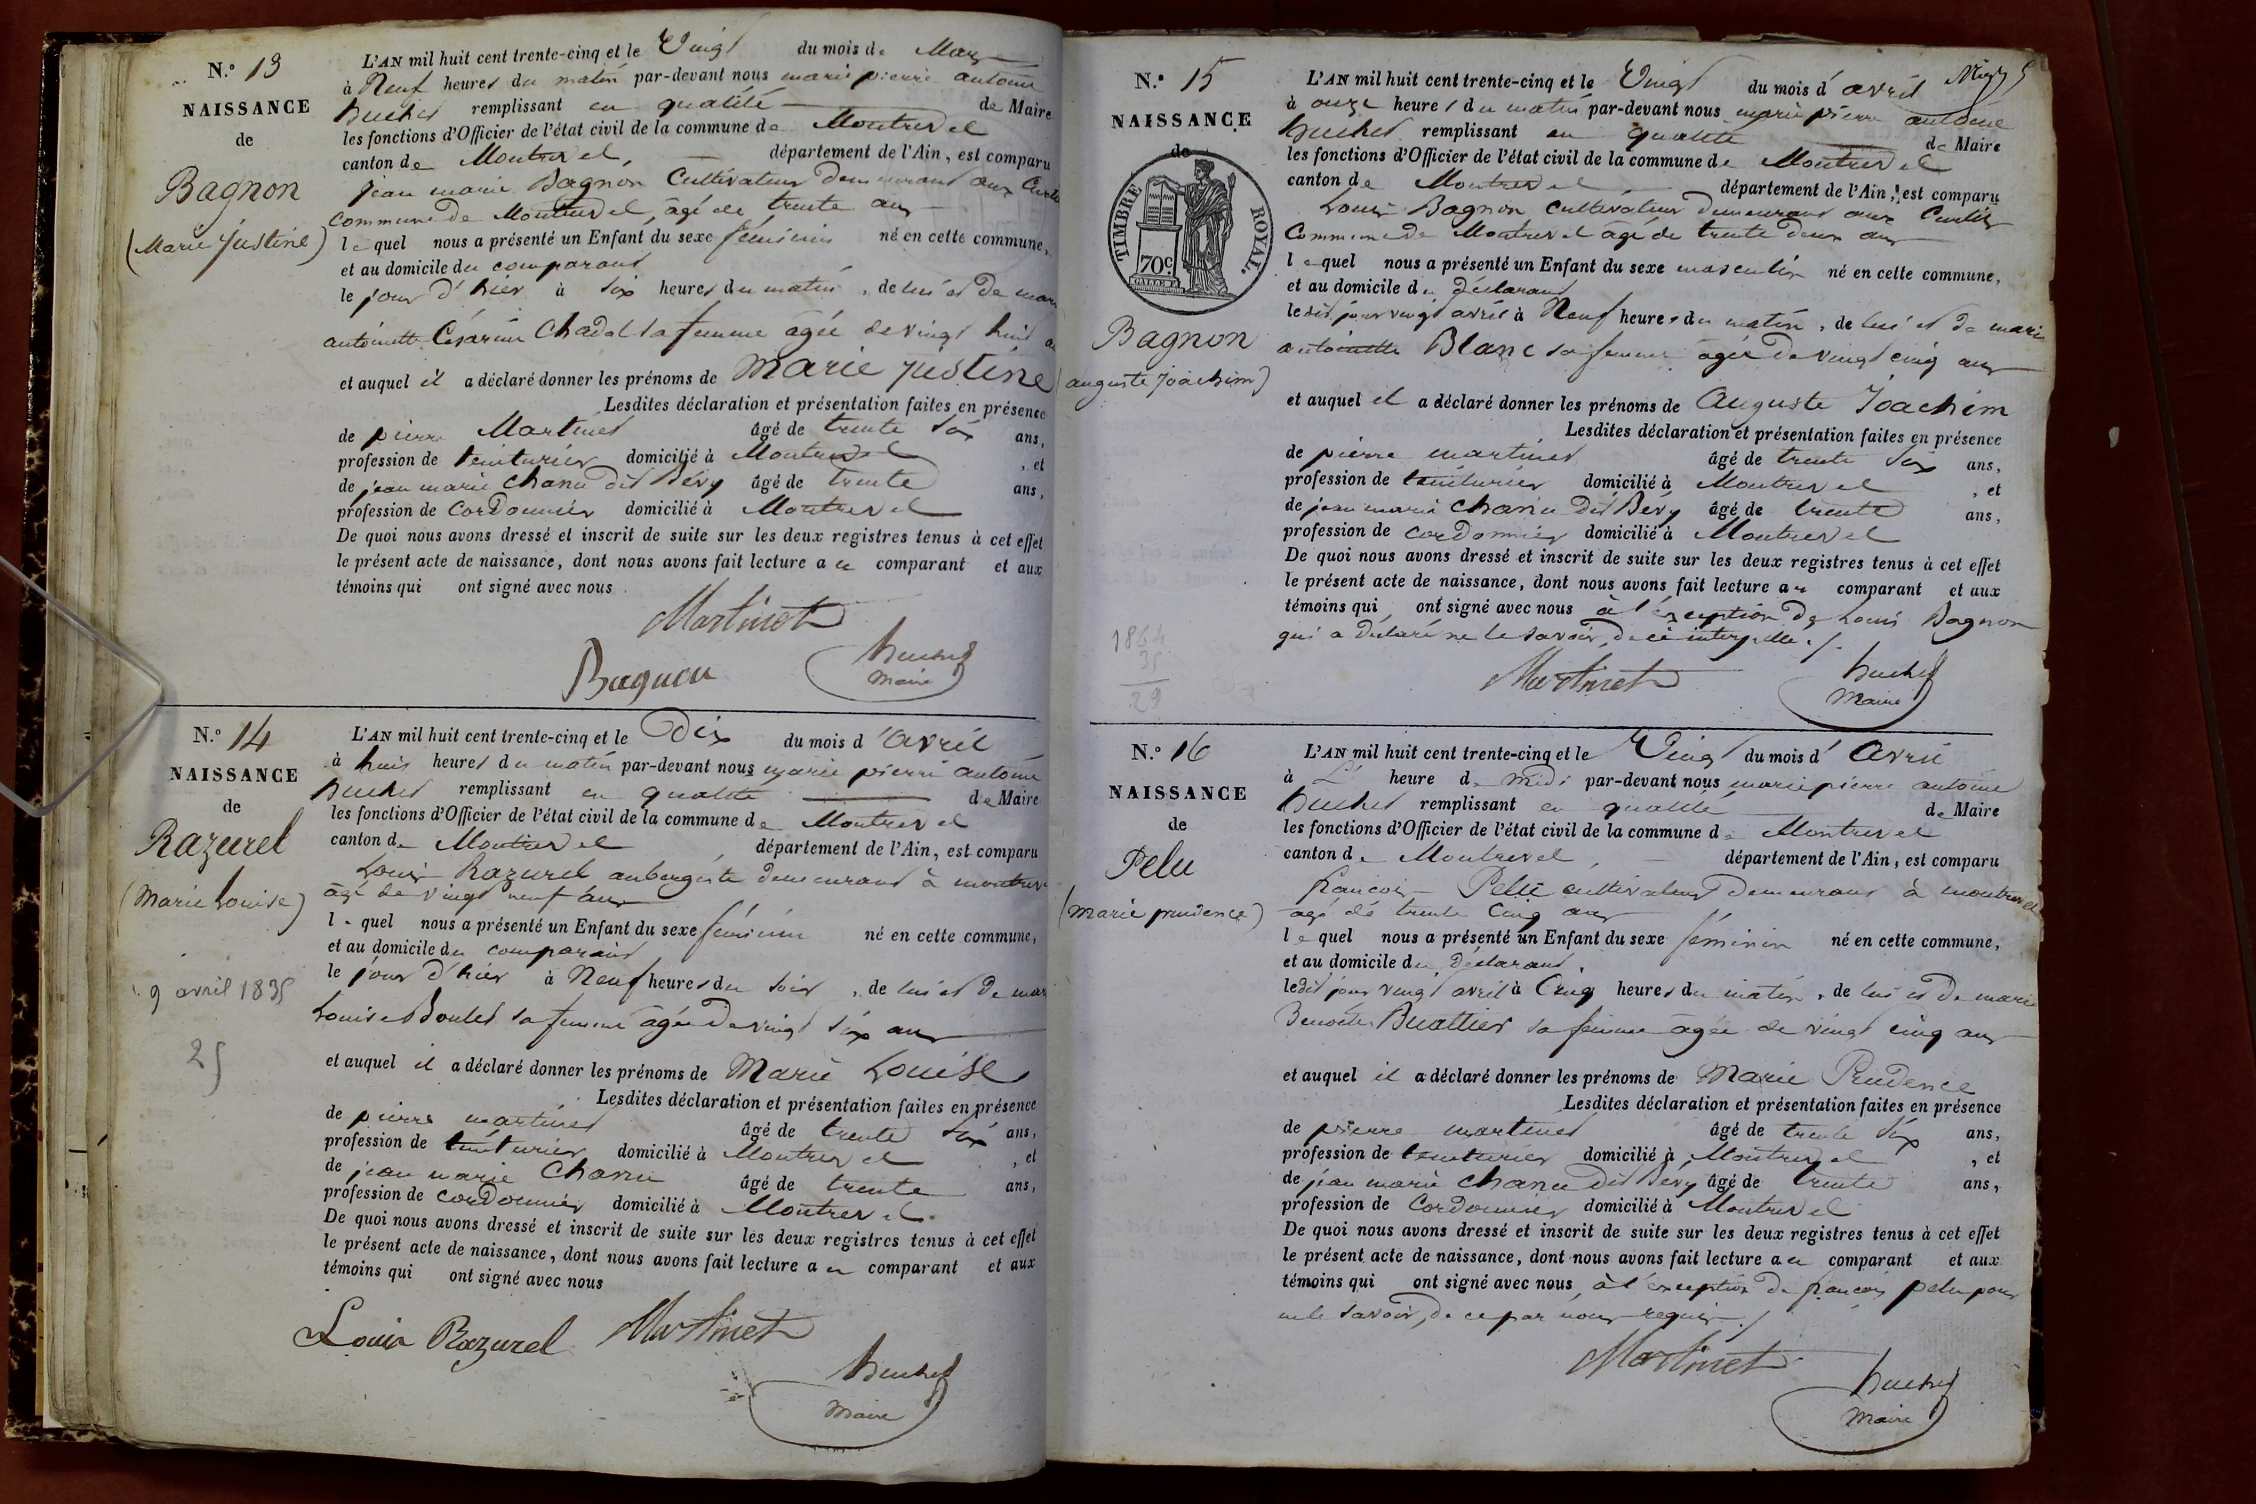 N.º 13
NAISSANCE
de
Bagnon
(Marie Justine)
L'AN mil huit cent trente-cinq et le Vingt du mois de Mars
à Neuf heures du matin par-devant nous marie pierre antoine
huchet remplissant en qualité de Maire
les fonctions d'Officier de l'état civil de la commune de Montrevel
canton de Montrevel, département de l'Ain, est comparu
jean marie Bagnon Cultivateur demeurant aux
commune de Montrevel, âgé de trente ans
lequel nous a présenté un Enfant du sexe féminin né en cette commune,
et au domicile du comparant
le jour d'hier à six heures du matin, de lui et de marie
antoinette Césarine Chadal sa femme âgée de vingt huit
et auquel il a déclaré donner les prénoms de Marie Justine
Lesdites déclaration et présentation faites en présence
de pierre Martinet âgé de trente six ans,
profession de teinturier domicilié à Montrevel, et
de jean marie Chanu dit Bévy âgé de trente ans,
profession de Cordonnier domicilié à Montrevel
De quoi nous avons dressé et inscrit de suite sur les deux registres tenus à cet effet
le présent acte de naissance, dont nous avons fait lecture au comparant et aux
témoins qui ont signé avec nous
Martinet
Bagnon
huchet
Maire
N.º 14
NAISSANCE
de
Razurel
(Marie Louise)
9 avril 1835
25
L'AN mil huit cent trente-cinq et le Dix du mois d'avril
à huit heures du matin par-devant nous marie pierre antoine
huchet remplissant en qualité de Maire
les fonctions d'Officier de l'état civil de la commune de Montrevel
canton de Montrevel département de l'Ain, est comparu
Louis Razurel aubergiste demeurant à montrevel
âgé de vingt neuf ans
lequel nous a présenté un Enfant du sexe féminin né en cette commune,
et au domicile du comparant
le jour d'hier à Neuf heures du soir, de lui et de marie
Louise Boulet sa femme âgée de vingt six ans
et auquel il a déclaré donner les prénoms de Marie Louise
Lesdites déclaration et présentation faites en présence
de pierre martinet âgé de trente six ans,
profession de teinturier domicilié à Montrevel, et
de jean marie Chanu âgé de trente ans,
profession de cordonnier domicilié à Montrevel
De quoi nous avons dressé et inscrit de suite sur les deux registres tenus à cet effet
le présent acte de naissance, dont nous avons fait lecture au comparant et aux
témoins qui ont signé avec nous
Louis Razurel Martinet
huchet
Maire
N.º 15
NAISSANCE
de
TIMBRE ROYAL.
70c
Bagnon
(auguste Joachim)
1864
35
29
L'AN mil huit cent trente-cinq et le Vingt du mois d'avril
à onze heures du matin par-devant nous marie pierre antoine
huchet remplissant en qualité de Maire
les fonctions d'Officier de l'état civil de la commune de Montrevel
canton de Montrevel département de l'Ain, est comparu
Louis Bagnon cultivateur demeurant aux Curtils
Commune de Montrevel âgé de trente deux ans
lequel nous a présenté un Enfant du sexe masculin né en cette commune,
et au domicile du déclarant
ledit jour vingt avril à Neuf heures du matin, de lui et de marie
antoinette Blanc sa femme âgée de vingt cinq ans
et auquel il a déclaré donner les prénoms de Auguste Joachim
Lesdites déclaration et présentation faites en présence
de pierre martinet âgé de trente six ans,
profession de teinturier domicilié à Montrevel, et
de jean marie Chanu dit Bévy âgé de trente ans,
profession de cordonnier domicilié à Montrevel
De quoi nous avons dressé et inscrit de suite sur les deux registres tenus à cet effet
le présent acte de naissance, dont nous avons fait lecture au comparant et aux
témoins qui ont signé avec nous à l'exception de Louis Bagnon
qui a déclaré ne le savoir, de ce interpellé ./.
Martinet
huchet
Maire
N.º 16
NAISSANCE
de
Pelu
(Marie prudence)
L'AN mil huit cent trente-cinq et le Vingt du mois d'avril
à L' heure de Midi par-devant nous marie pierre antoine
huchet remplissant en qualité de Maire
les fonctions d'Officier de l'état civil de la commune de Montrevel
canton de Montrevel, département de l'Ain, est comparu
françois Pelu cultivateur demeurant à montrevel
âgé de trente cinq ans
lequel nous a présenté un Enfant du sexe féminin né en cette commune,
et au domicile du déclarant,
ledit jour vingt avril à Cinq heures du matin, de lui et de marie
Benoite Buattier sa femme âgée de vingt cinq ans
et auquel il a déclaré donner les prénoms de Marie Prudence
Lesdites déclaration et présentation faites en présence
de pierre martinet âgé de trente six ans,
profession de teinturier domicilié à Montrevel, et
de jean marie Chanu dit Bévy âgé de trente ans,
profession de Cordonnier domicilié à Montrevel
De quoi nous avons dressé et inscrit de suite sur les deux registres tenus à cet effet
le présent acte de naissance, dont nous avons fait lecture au comparant et aux
témoins qui ont signé avec nous, à l'exception de françois pelu pour
ne le savoir, de ce par nous requis ./
Martinet
huchet
Maire